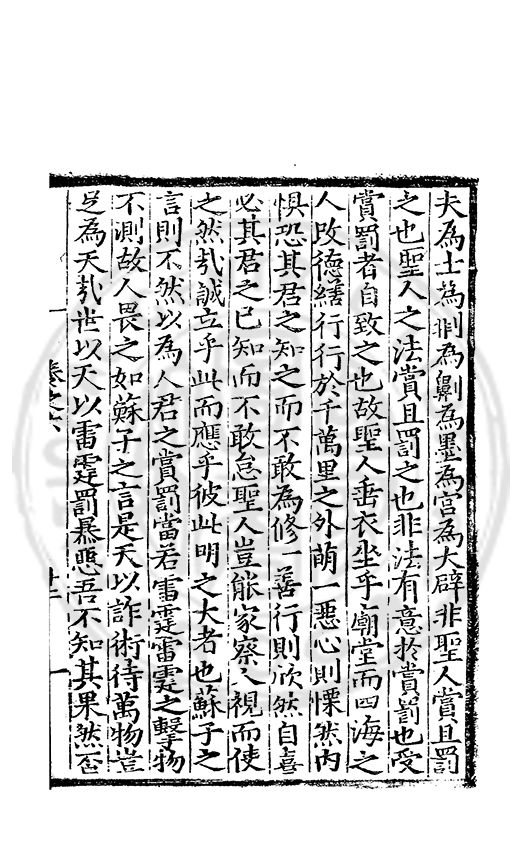 夫為士為剕為劓為墨為宮為大辟非聖人賞且罰
之也聖人之法賞且罰之也非法有意扵賞罰也受
賞罰者自致之也故聖人垂衣坐乎廟堂而四海之
人改德繕行行於千萬里之外萌一惡心則慄然内
惧恐其君之知之而不敢為修一善行則欣然自喜
必其君之已知而不敢怠聖人豈能家察人視而使
之然㢤誠立乎此而應乎彼此明之大者也蘇子之
言則不然以為人君之賞罰當若雷霆雷霆之擊物
不測故人畏之如蘇子之言是天以詐術待萬物豈
足為天㢤世以天以雷霆罰暴惡吾不知其果然否
卷之六
十二